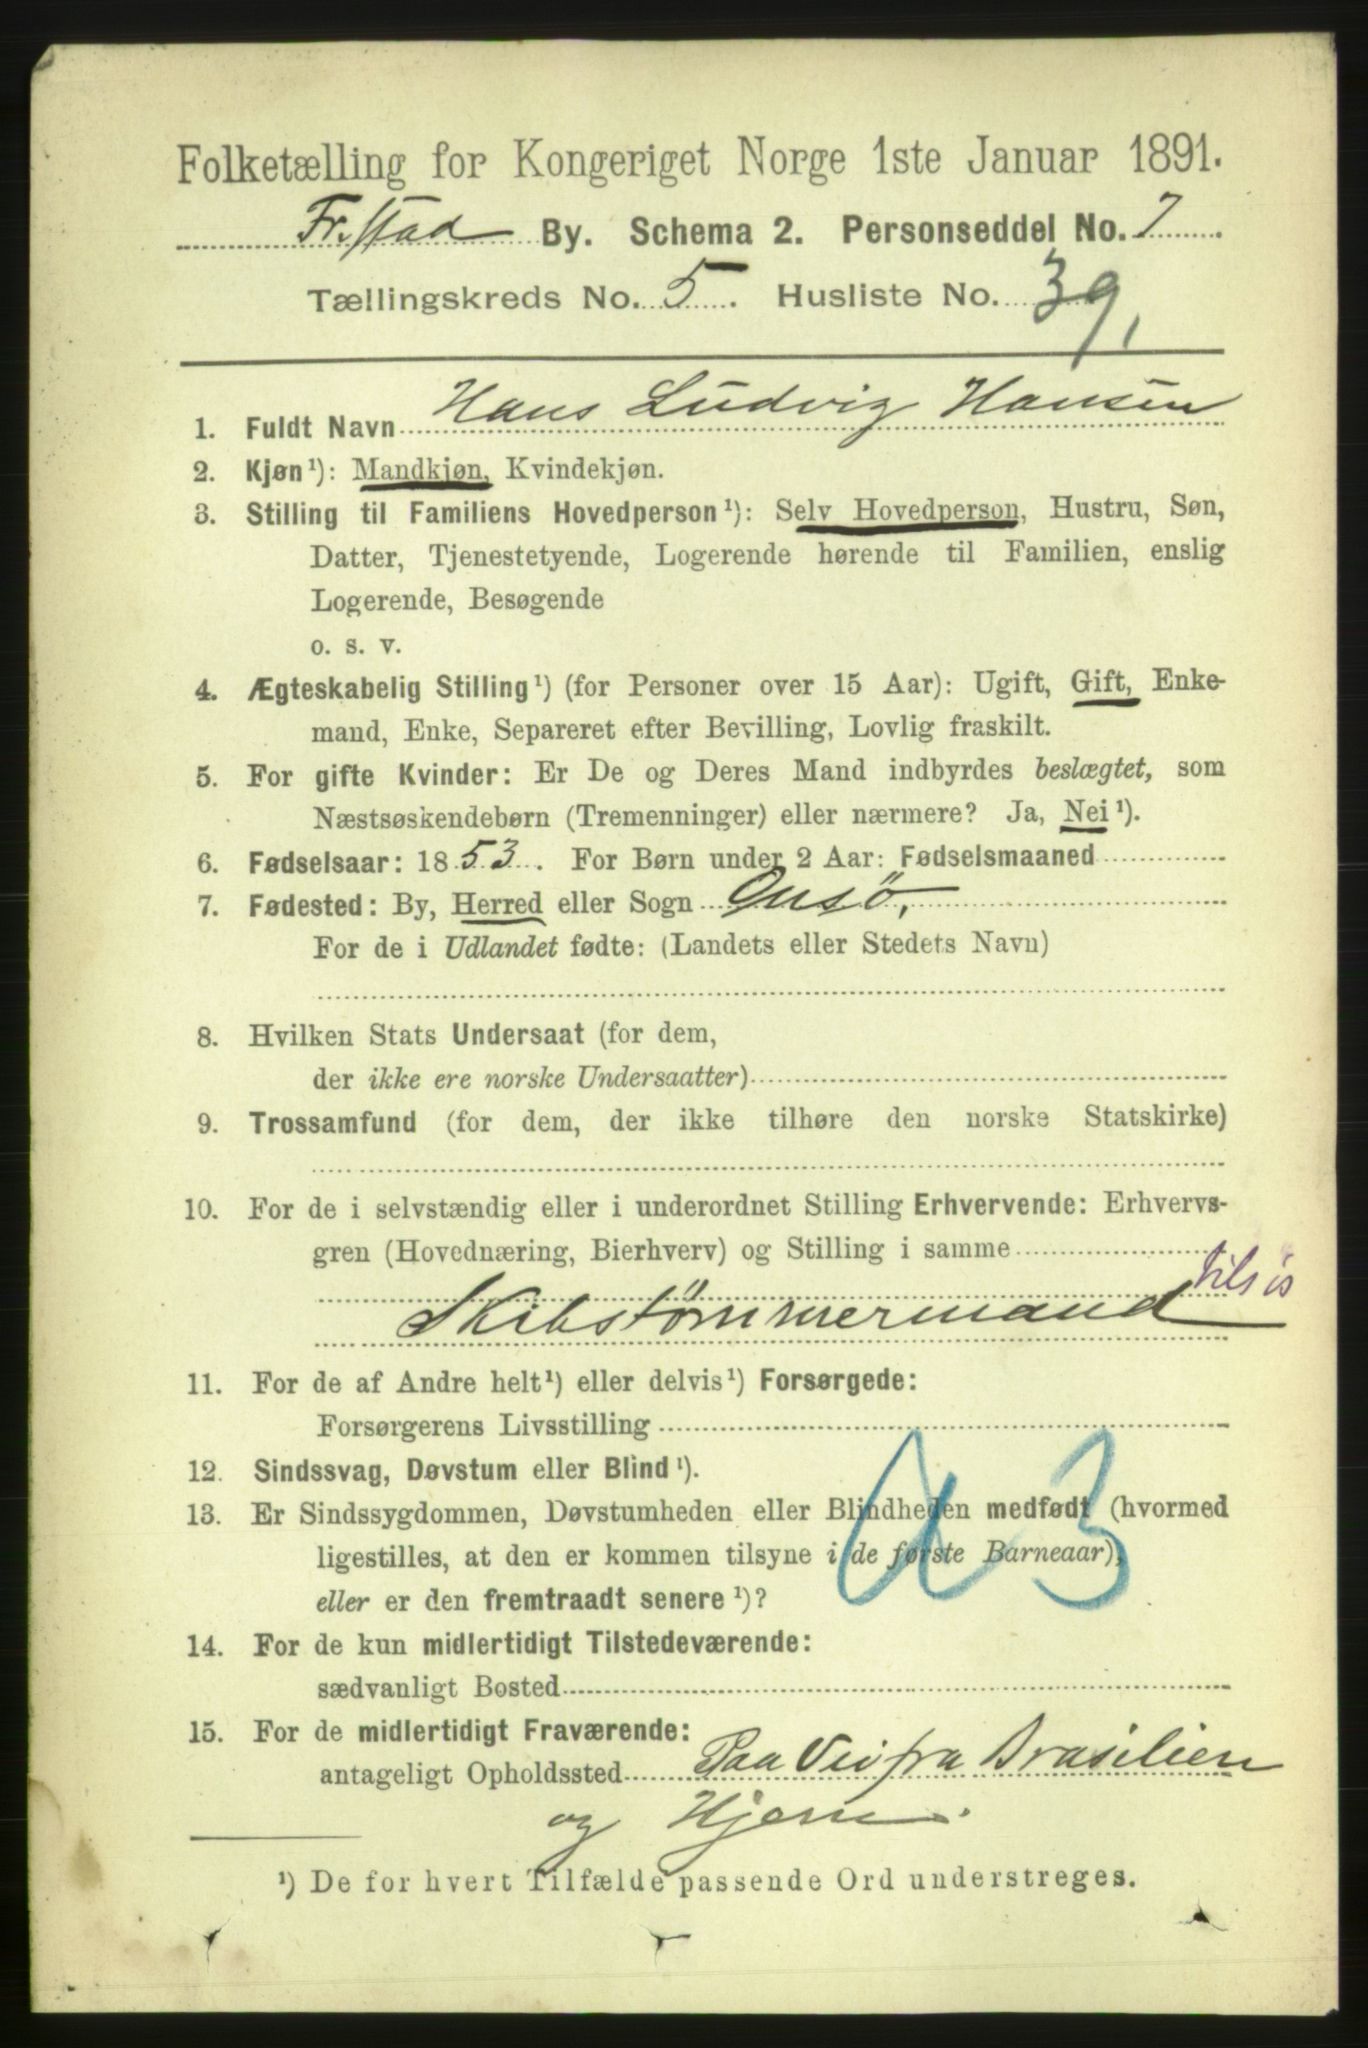 Folketælling for Kongeriget Norge 1ste Januar 1891.
Fr.stad By. Schema 2. Personseddel No. 7
Tællingskreds No. 5. Husliste No. 39,
1. Fuldt Navn Hans Ludvig Hansen
2. Kjøn¹): Mandkjøn, Kvindekjøn.
3. Stilling til Familiens Hovedperson¹): Selv Hovedperson, Hustru, Søn,
Datter, Tjenestetyende, Logerende hørende til Familien, enslig
Logerende, Besøgende
o. s. v.
4. Ægteskabelig Stilling¹) (for Personer over 15 Aar): Ugift, Gift, Enke-
mand, Enke, Separeret efter Bevilling, Lovlig fraskilt.
5. For gifte Kvinder: Er De og Deres Mand indbyrdes beslægtet, som
Næstsøskendebørn (Tremenninger) eller nærmere? Ja, Nei¹).
6. Fødselsaar: 1853. For Børn under 2 Aar: Fødselsmaaned
7. Fødested: By, Herred eller Sogn Onsö,
For de i Udlandet fødte: (Landets eller Stedets Navn)
8. Hvilken Stats Undersaat (for dem,
der ikke ere norske Undersaatter)
9. Trossamfund (for dem, der ikke tilhøre den norske Statskirke)
10. For de i selvstændig eller i underordnet Stilling Erhvervende: Erhvervs-
gren (Hovednæring, Bierhverv) og Stilling i samme
tilsjøs
Skibstømmermand
11. For de af Andre helt¹) eller delvis¹) Forsørgede:
Forsørgerens Livsstilling
12. Sindssvag, Døvstum eller Blind¹).
13. Er Sindssygdommen, Døvstumheden eller Blindheden medfødt (hvormed
ligestilles, at den er kommen tilsyne i de første Barneaar),
eller er den fremtraadt senere¹)?
14. For de kun midlertidigt Tilstedeværende:
sædvanligt Bosted
15. For de midlertidigt Fraværende:
antageligt Opholdssted Paa Vei fra Brasilien
og Hjem.
¹) De for hvert Tilfælde passende Ord understreges.